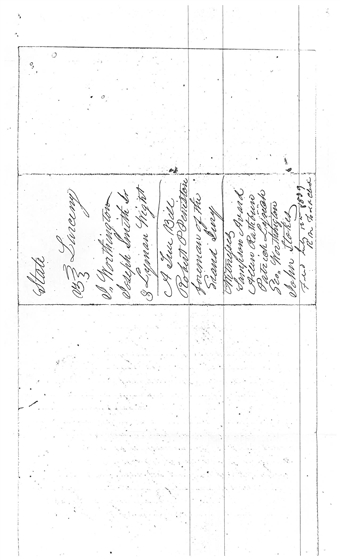 State
vs } Larceny
J. Worthington
Joseph Smith Jr
& Lyman Wight
A True Bill
Robert P Peniston
foreman of the
Grand Jury
Witnesses
Sampson Avard
Allen Rathbun
Patrick Lynch
Geo. Worthington
John Stokes
Filed 10 1839